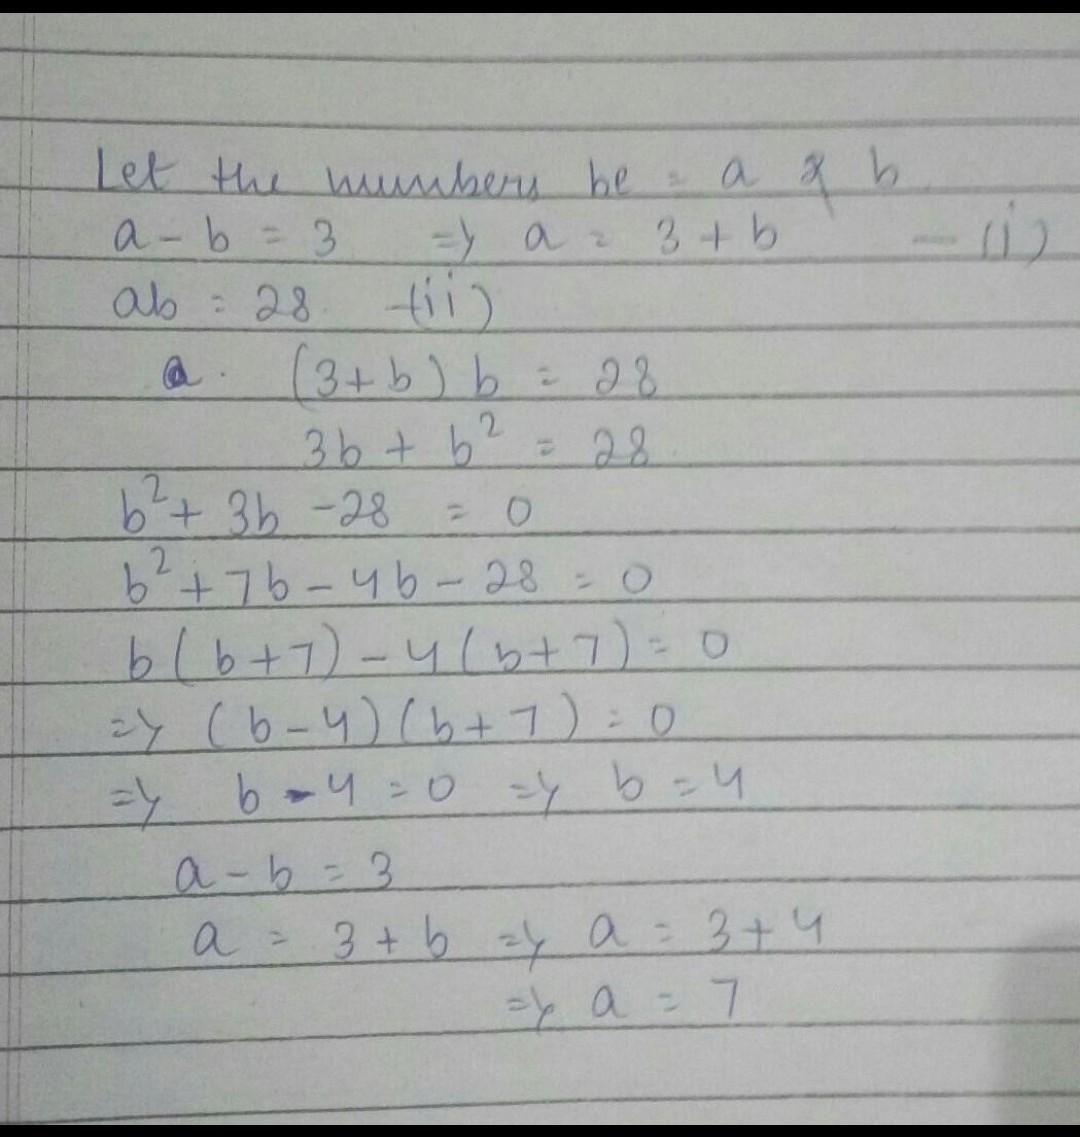 Let the numbers be = a & b
a - b = 3 => a = 3 + b - (i)
ab = 28. - (ii)
a. (3 + b) b = 28
3b + b² = 28
b² + 3b - 28 = 0
b² + 7b - 4b - 28 = 0
b(b + 7) - 4(b + 7) = 0
=> (b - 4)(b + 7) = 0
=> b - 4 = 0 => b = 4
a - b = 3
a = 3 + b => a = 3 + 4
=> a = 7